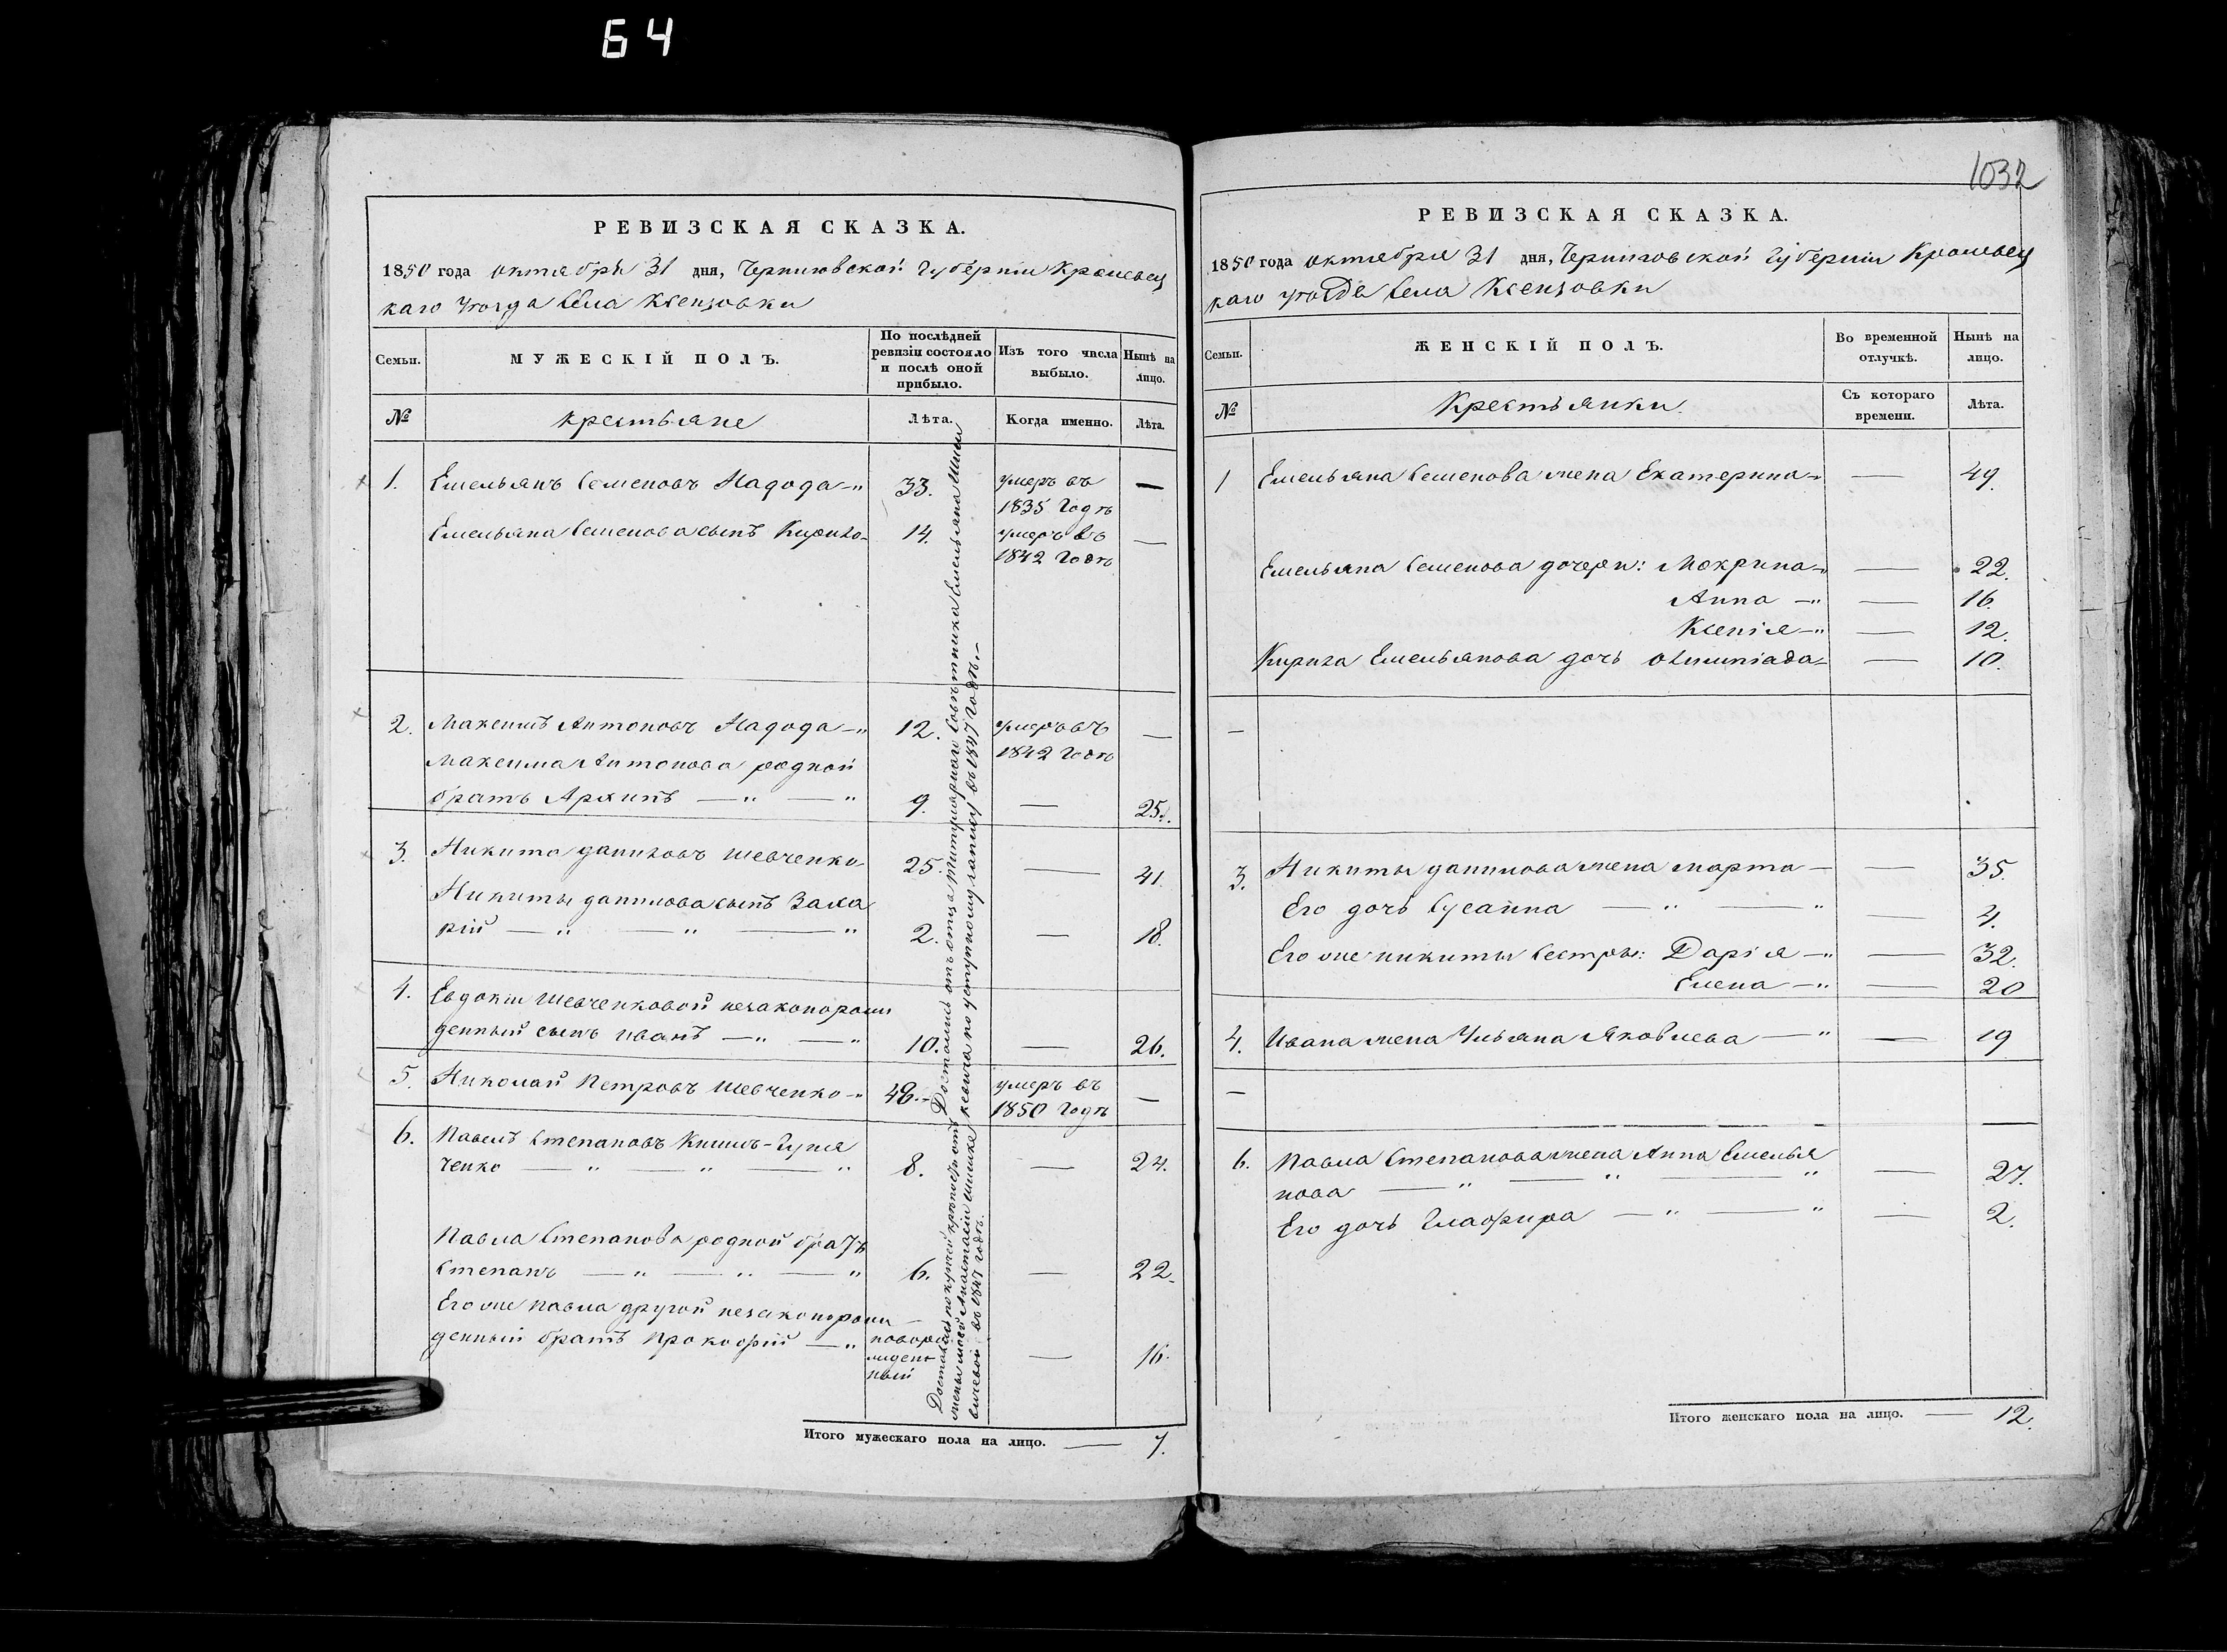 64
РЕВИЗСКАЯ СКАЗКА.
1850 года октября 31 дня, Черниговской Губерніи Кролевец
каго Уѣзда Села Ксензовки
Семьи.
МУЖЕСКІЙ ПОЛЪ.
По послѣдней ревизіи состояло и послѣ оной прибыло.
Изъ того числа выбыло.
Нынѣ на лицо.
№
Крестьяне
Лѣта.
Когда именно.
Лѣта.
1. Емельянъ Семеновъ Надода —〃 33. умеръ въ —
1835 Годѣ
Емельяна Семенова сынъ Кирило 14. умеръ въ —
1842 Годѣ
2. Максимъ Антоновъ Надода —〃 12. умеръ въ —
1842 Годѣ
Максима Антонова родной
братъ Архипъ —〃 —〃 9. — 25.
3. Никита Даниловъ Шевченко 25. — 41.
Никиты Данилова сынъ Заха
рій —〃 —〃 —〃 2. — 18.
4. Евдокіи Шевченковой незаконорож
денный сынъ Иванъ —〃 —〃 10. — 26.
5. Николай Петровъ Шевченко —〃 48. умеръ въ —
1850 Годѣ
6. Павелъ Степановъ Кишь-Гуля
ченко —〃 —〃 —〃 8. — 24.
Павла Степанова родной братъ
Степанъ —〃 —〃 —〃 6. — 22.
Его же Павла другой незаконорож
денный братъ Прокофій —〃 новорож
денный — 16.
Достались по купчей крѣпости отъ
жены моей Анастасіи
въ 1847 годѣ.
Достались отъ отца Титулярнаго Совѣтника Емельяна
по уступному запису въ 1847 Годѣ.—
Итого мужескаго пола на лицо. — 7.
1032
РЕВИЗСКАЯ СКАЗКА.
1850 года октября 31 дня, Черниговской Губерніи Кролевец
каго уѣзда Села Ксензовки
Семьи.
ЖЕНСКІЙ ПОЛЪ.
Во временной отлучкѣ.
Нынѣ на лицо.
№
Крестьянки.
Съ котораго времени.
Лѣта.
1 Емельяна Семенова жена Екатерина —〃 — 49.
Емельяна Семенова дочери: Мокрина —〃 — 22.
Анна —〃 — 16.
Ксенія —〃 — 12.
Кирила Емельянова дочь Олимпіада — — 10.
—
3. Никиты Данилова жена Марта — — 35.
Его дочь Сусанна —〃 —〃 — 4.
Его же Никиты Сестры: Дарія —〃 — 32.
Елена —〃 — 20
4. Ивана жена Ульяна Яковлева —〃 — 19
—
6. Павла Степанова жена Анна Емелья
нова —〃 —〃 —〃 — 27.
Его дочь Глафира —〃 —〃 — 2.
Итого женскаго пола на лицо. — 12.